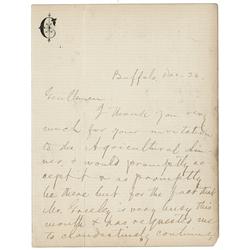 Buffalo, Dec. 26.
Gentlemen
I thank you very
much for your invitation
to the Agricultural din-
ner, & would promptly ac-
cept it & as promptly
be there but for the fact that
Mr. Greeley is very busy this
month & has requested me
to clandestinely continue